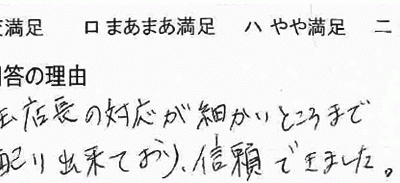 満足 ロ まあまあ満足 ハ やや満足 ニ
答の理由
店長の対応が細かいところまで
配り出来ており、信頼できました。